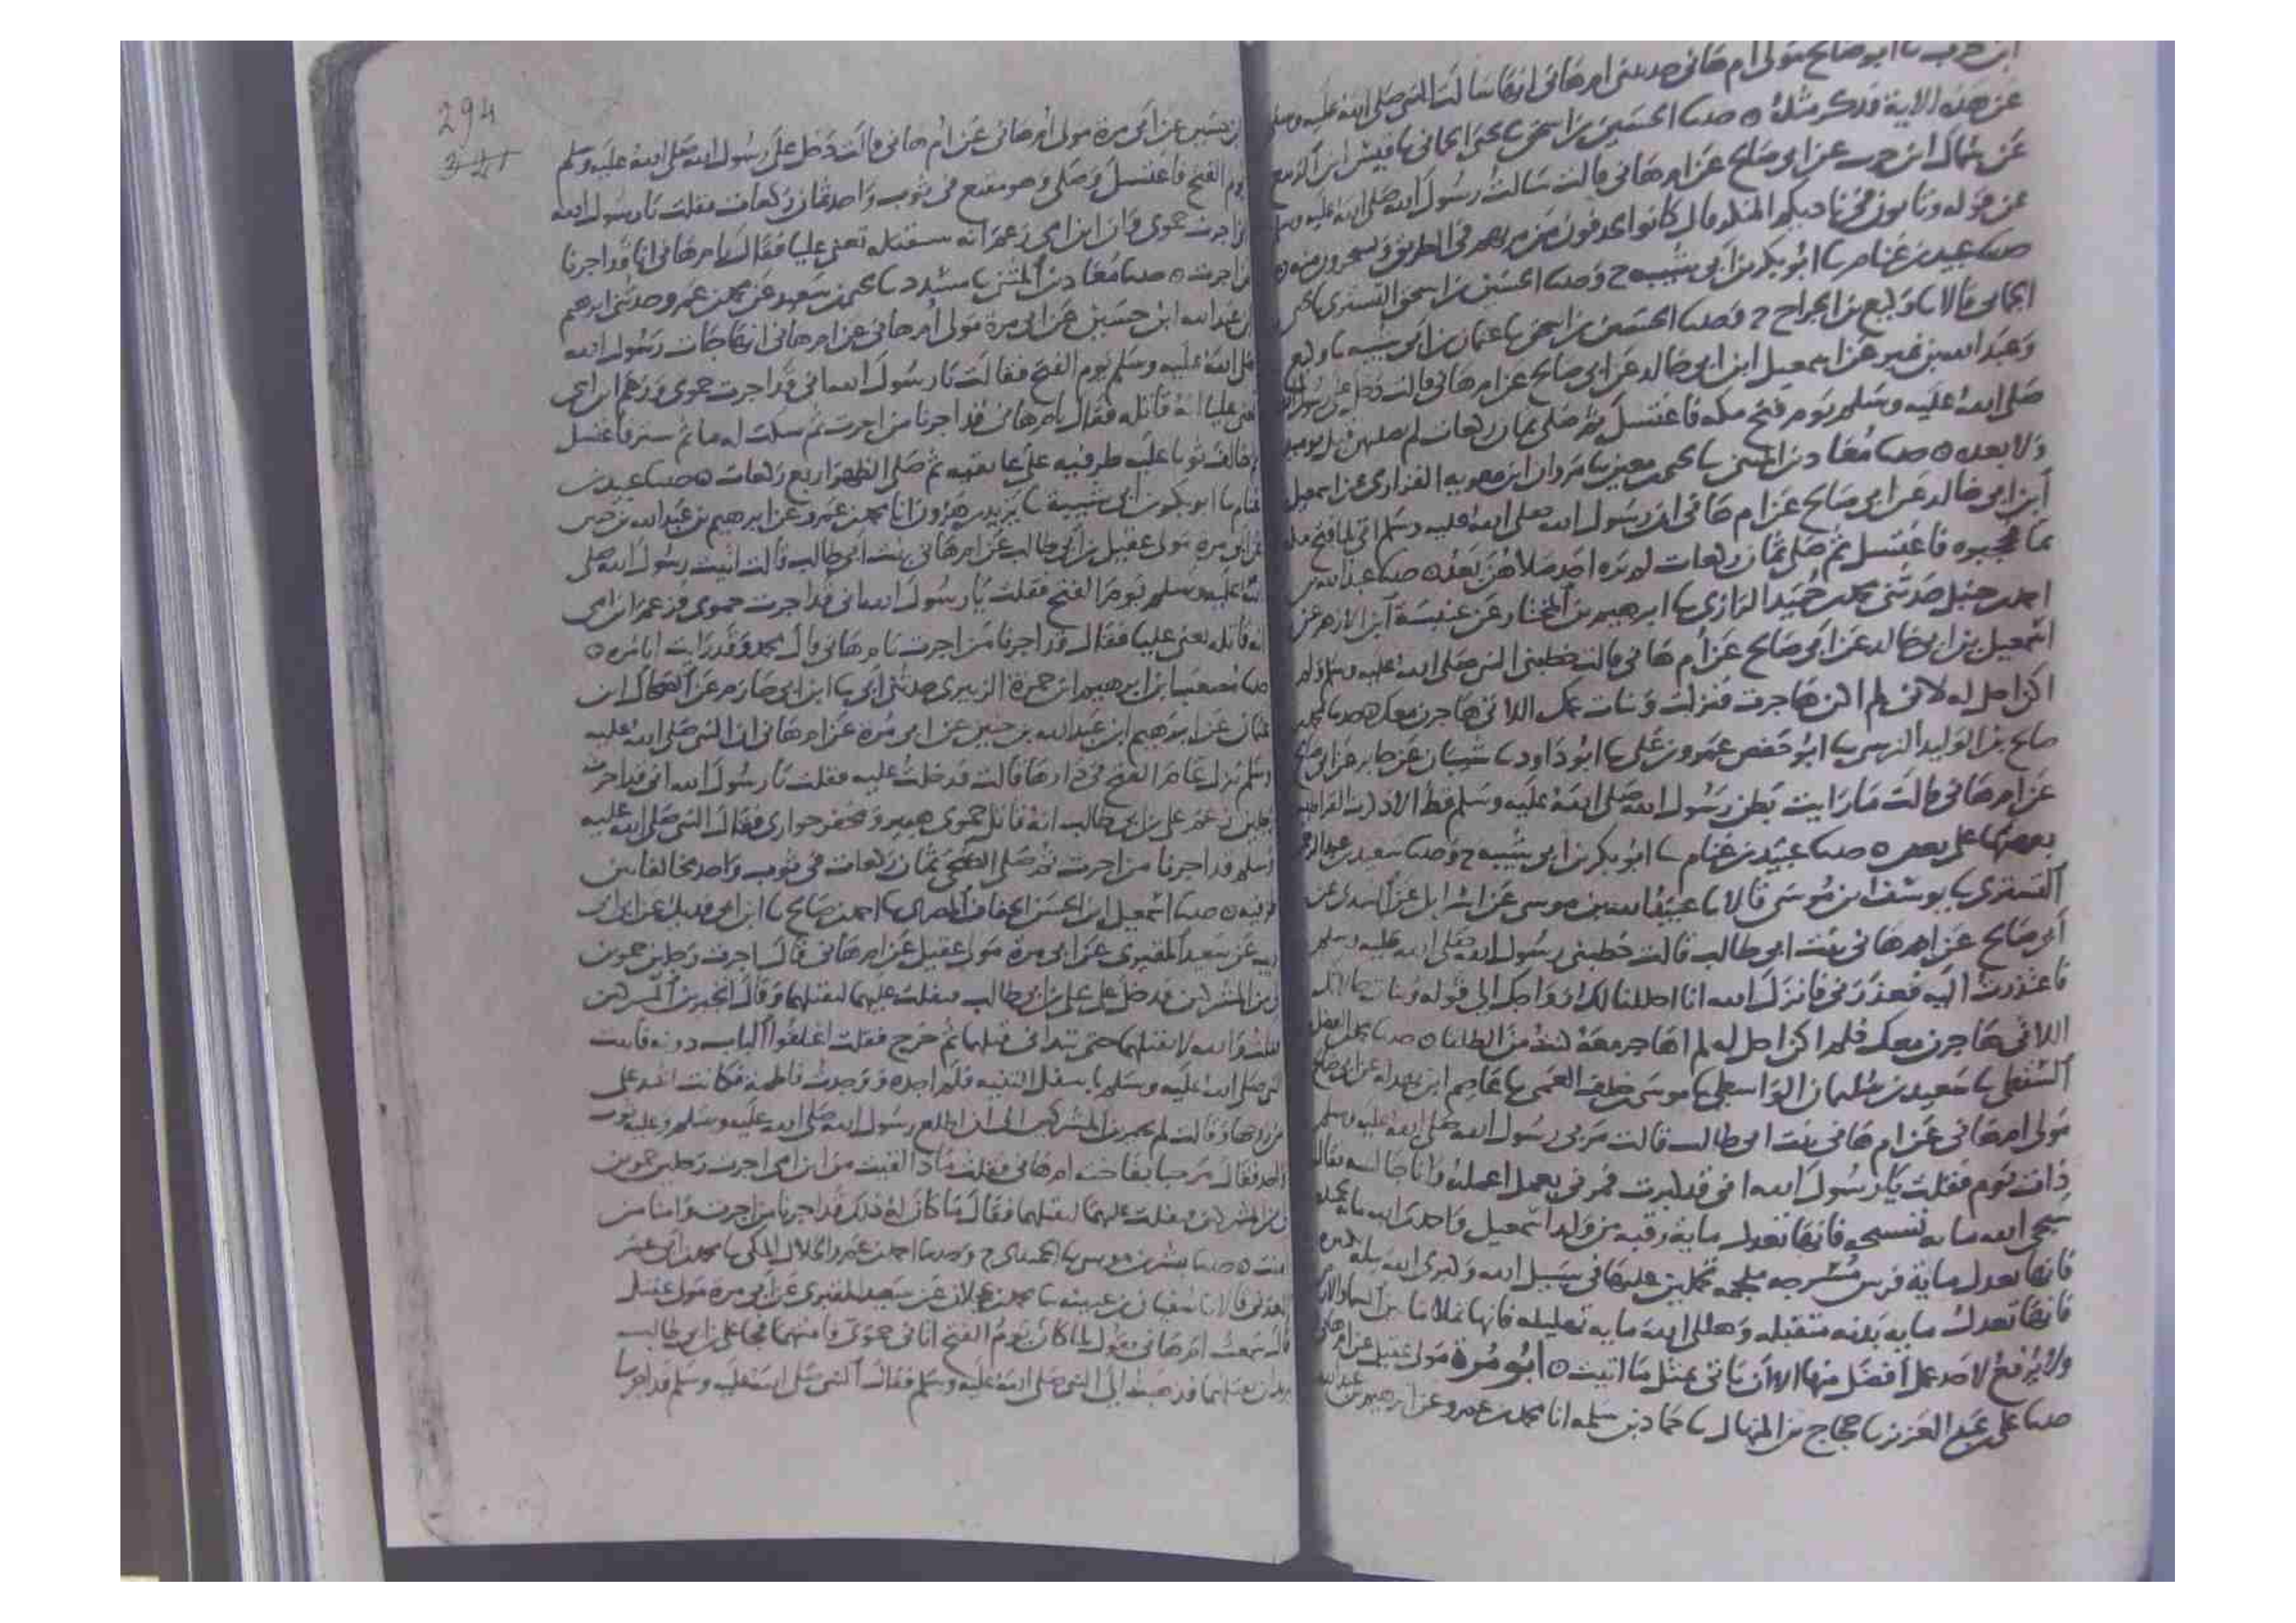 ابن حرب سا ابو صالح مولى ام هانى حدثتنى ام هانى انها سالت النبى صلى الله عليه وسلم
عن هذه الاية فذكر مثله ٥ حدثنا الحسين بن اسحق سا يحيى الحمانى سا قيس ابن الربيع
عن سماك ابن حرب عن ابى صالح عن ام هانى قالت سالت رسول الله صلى الله عليه وسلم
عن قوله وتاتون فى ناديكم المنكر قال كانوا يحذفون من مر بهم فى الطريق ويسخرون منه ٥
حدثنا عبيد بن غنام سا ابو بكر بن ابى شيبه ح وحدثنا الحسين بن اسحق التسترى سا يحيى
الحمانى قالا سا وكيع بن الجراح ح وحدثنا الحسين بن اسحق سا عثمان بن ابى شيبه سا وكيع
وعبد الله بن نمير عن اسمعيل ابن ابى خالد عن ابى صالح عن ام هانى قالت دخل على رسول الله
صلى الله عليه وسلم يوم فتح مكه فاغتسل ثم صلى ثمان ركعات لم يصلهن قبل يوميذ
ولا بعده ٥ حدثنا معاذ بن المثنى سا يحيى بن معين سا مروان ابن معويه الفزارى عن اسمعيل
ابن ابى خالد عن ابى صالح عن ام هانى ان رسول الله صلى الله عليه وسلم اتى لما فتح مكه
بما فاغتسل ثم صلى ثمان ركعات لم يره احد صلاهن بعد ٥ حدثنا عبد الله بن
احمد بن حنبل حدثنى محمد بن حميد الرازى سا ابرهيم بن المختار عن عنبسة ابن الازهر عن
اسمعيل بن ابى خالد عن ابى صالح عن ام هانى قالت خطبنى النبى صلى الله عليه وسلم ولم
اكن احل له لانى لم اكن هاجرت فنزلت وبنات عمك اللاتى هاجرن معك ٥ حدثنا محمد
صالح بن الوليد النرسى سا ابو حفص عمرو بن على سا ابو داود سا شيبان عن جابر عن ابى صالح
عن ام هانى قالت ما رايت بطن رسول الله صلى الله عليه وسلم قط الا ذكرت القراطيس
بعضها على بعض ٥ حدثنا عبيد بن غنام سا ابو بكر بن ابى شيبه ح وحدثنا سعيد بن عبد الرحمن
التسترى سا يوسف ابن موسى قالا سا عبيد الله بن موسى عن اسرايل عن السدى عن
ابى صالح عن ام هانى بنت ابى طالب قالت خطبنى رسول الله صلى الله عليه وسلم
فاعتذرت اليه فعذرنى فانزل الله انا احللنا لك ازواجك الى قوله وبنات خالاتك
اللاتى هاجرن معك فلم اكن احل له لم اهاجر معه كنت من الطلقا ٥ حدثنا محمد بن الفضل
السقطى سا سعيد بن سليمان الواسطى سا موسى بن خلف العمى سا عاصم ابن بهدله عن ابى صالح
مولى ام هانى عن ام هانى بنت ابى طالب قالت مر بى رسول الله صلى الله عليه وسلم
ذات يوم فقلت يا رسول الله انى قد كبرت فمرنى بعمل اعمله وانا جالسه فقال
سبحى الله مايه تسبيحه فانها تعدل مايه رقبه من ولد اسمعيل واحمدى الله مايه تحميده
فانها تعدل ماية فرس مسرجه ملجمه تحملين عليها فى سبيل الله وكبرى الله مايه تكبيره
فانها تعدل مايه بدنه متقبله وهللى الله مايه تهليله فانها تملا ما بين السما والارض
ولا يرفع لاحد عمل افضل منها الا ان ياتى بمثل ما اتيت ٥ ابو مرة مولى عقيل عن ام هانى
حدثنا على بن عبد العزيز سا حجاج بن المنهال سا حماد بن سلمه انا محمد بن عمرو عن ابرهيم بن عبد الله
294
341
بن حنين عن ابى مرة مولى ام هانى عن ام هانى قالت دخل على رسول الله صلى الله عليه وسلم
يوم الفتح فاغتسل وصلى وهو مقنع فى ثوب واحد ثمان ركعات فقلت يا رسول الله
انى اجرت حموى وان ابن امى زعم انه سيقتله تعنى عليا فقال يا ام هانى انا قد اجرنا
من اجرت ٥ حدثنا معاذ بن المثنى سا مسدد سا يحيى بن سعيد عن محمد بن عمرو حدثنى ابرهيم
بن عبد الله ابن حنين عن ابى مرة مولى ام هانى عن ام هانى انها جات رسول الله
صلى الله عليه وسلم يوم الفتح فقالت يا رسول الله انى قد اجرت حموى وزعم ابن امى
تعنى عليا انه قاتله فقال يا ام هانى قد اجرنا من اجرت ثم سكبت له ما ثم ستر فاغتسل
وخالف ثوبا عليه طرفيه على عاتقيه ثم صلى الظهر اربع ركعات ٥ حدثنا عبيد بن
غنام سا ابو بكر بن ابى شيبة سا يزيد بن هرون انا محمد بن عمرو عن ابرهيم بن عبد الله بن حنين
عن ابى مره مولى عقيل بن ابى طالب عن ام هانى بنت ابى طالب قالت اتيت رسول الله صلى
الله عليه وسلم يوم الفتح فقلت يا رسول الله انى قد اجرت حموى فزعم ابن امى
انه قاتله يعنى عليا فقال قد اجرنا من اجرت يا ام هانى قال محمد وقد رايت ابا مره ٥
حدثنا مصعب ابن ابرهيم ابن حمزة الزبيرى حدثنى ابى سا ابن ابى حازم عن الضحاك ابن
عثمان عن ابرهيم ابن عبد الله بن حنين عن ابى مرة عن ام هانى ان النبى صلى الله عليه
وسلم نزل عام الفتح فى دارها قالت فدخلت عليه فقلت يا رسول الله انى قد اجرت
رجلين زعم على بن ابى طالب انه قاتل حموى هبيره ومخفر جوارى فقال النبى صلى الله عليه
وسلم قد اجرنا من اجرت ثم صلى الضحى ثمان ركعات فى ثوب واحد مخالفا بين
طرفيه ٥ حدثنا اسمعيل ابن الحسن الخفاف المصرى سا احمد بن صالح سا ابن ابى فديك عن ابن ابى
ذيب عن سعيد المقبرى عن ابى مرة مولى عقيل عن ام هانى قالت اجرت رجلين حموين
من المشركين فدخل على على بن ابى طالب فتفلت عليهما ليقتلهما وقال اتجيرين المشركين
فقلت والله لا تقتلهما حتى تبدا بى قبلهما ثم خرج فقلت اغلقوا الباب دونه فاتيت
النبى صلى الله عليه وسلم باسفل الثنيه فلم اجده ووجدت فاطمة فكانت اشد على
من زوجها وقالت لم تجيرين المشركين الى ان اطلع رسول الله صلى الله عليه وسلم وعليه ثوب
واحد فقال مرحبا بفاخته ام هانى فقلت ماذا لقيت من ابن امى اجرت رجلين حموين
من المشركين فتفلت عليهما ليقتلهما فقال ما كان له ذلك قد اجرنا من اجرت وامنا من
امنت ٥ حدثنا بشر بن موسى سا الحميدى ح وحدثنا احمد بن عمرو الخلال المكى سا محمد ابن ابى عمر
العدنى قالا سا سفيان بن عيينه سا محمد بن عجلان عن سعيد المقبرى عن ابى مرة مولى عقيل
قال سمعت ام هانى تقول لما كان يوم الفتح اتانى حموى وامنتهما فجا على بن ابى طالب
يريد ان يقتلهما فذهبت الى النبى صلى الله عليه وسلم فقال النبى صلى الله عليه وسلم قد اجرنا